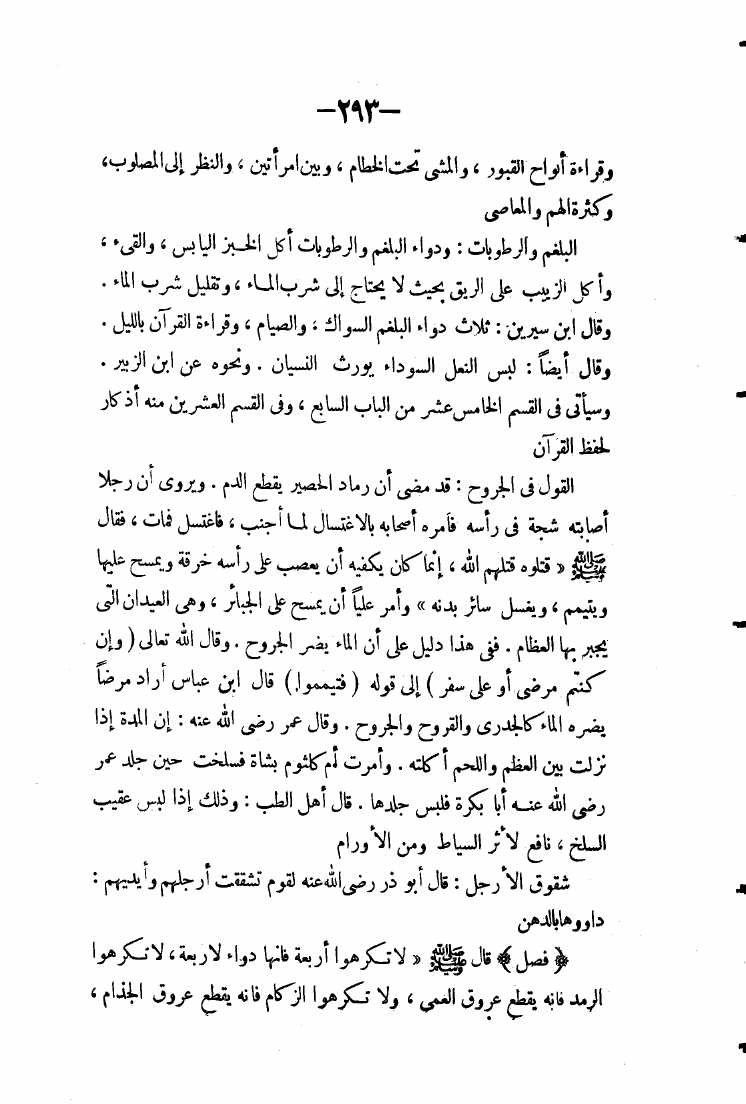 —٢٩٣—
وقراءة ألواح القبور ، والمشى تحت الخطام ، وبين امرأتين ، والنظر إلى المصلوب،
وكثرة الهم والمعاصى
البلغم والرطوبات : ودواء البلغم والرطوبات أكل الخبز اليابس ، والقىء ،
وأكل الزبيب على الريق بحيث لا يحتاج إلى شرب المـاء ، وتقليل شرب الماء .
وقال ابن سيرين : ثلاث دواء البلغم السواك ، والصيام ، وقراءة القرآن بالليل .
وقال أيضاً : لبس النعل السوداء يورث النسيان . ونحوه عن ابن الزبير .
وسيأتى فى القسم الخامس عشر من الباب السابع ، وفى القسم العشرين منه أذكار
لحفظ القرآن
القول فى الجروح : قد مضى أن رماد الحصير يقطع الدم . ويروى أن رجلا
أصابته شجة فى رأسه فأمره أصحابه بالاغتسال لمـا أجنب ، فاغتسل فمات ، فقال
ﷺ « قتلوه قتلهم الله ، إنما كان يكفيه أن يعصب على رأسه خرقة ويمسح عليها
ويتيمم ، ويغسل سائر بدنه » وأمر علياً أن يمسح على الجبائر ، وهى العيدان التى
يجبر بها العظام . ففى هذا دليل على أن الماء يضر الجروح . وقال الله تعالى ( وإن
كنتم مرضى أو على سفر ) إلى قوله ( فتيمموا ) قال ابن عباس أراد مرضاً
يضره الماء كالجدرى والقروح والجروح . وقال عمر رضى الله عنه : إن المدة إذا
نزلت بين العظم واللحم أكلته . وأمرت أم كلثوم بشاة فسلخت حين جلد عمر
رضى الله عنـه أبا بكرة فلبس جلدها . قال أهل الطب : وذلك إذا لبس عقيب
السلخ ، نافع لأثر السياط ومن الأورام
شقوق الأرجل : قال أبو ذر رضى الله عنه لقوم تشققت أرجلهم وأيديهم :
داووها بالدهن
﴿ فصل ﴾ قال ﷺ « لا تكرهوا أربعة فانها دواء لاربعة ، لا تكرهوا
الرمد فانه يقطع عروق العمى ، ولا تكرهوا الزكام فانه يقطع عروق الجذام ،